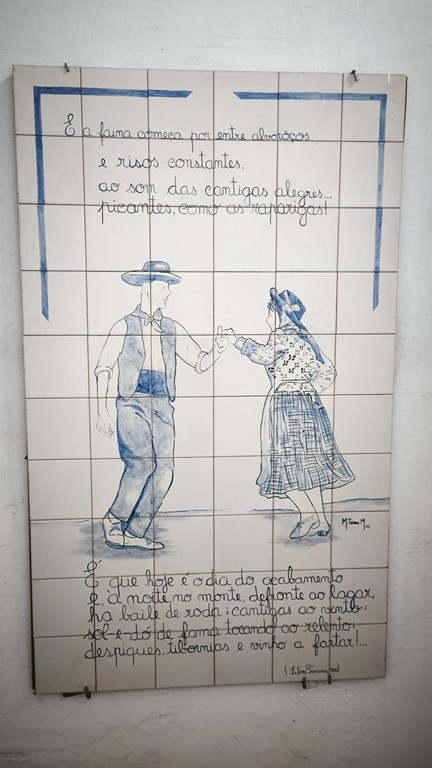 E a faina começa por entre alvoroços
e risos constantes,
ao som das cantigas alegres...
picantes, como as raparigas!
É que hoje é o dia do acabamento
e, à noite, no monte, defronte ao lagar,
há baile de roda; cantigas ao vento;
sol-e-dó de fama tocando ao relento;
despiques, tibornias e vinho a fartar!...